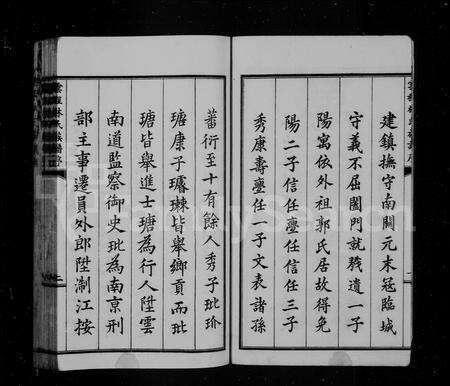 建鎮撫守南關元末冠臨城
守義不屈闔門就戮遺一子
陽寓依外祖郭氏居故得免
陽二子信任慶任信任三子
秀康壽慶任一子文表諸孫
蕃衍至十有餘人秀子玭玠
瑭康子璿竦皆舉鄉貢而玭
瑭皆舉進士瑭為行人陞雲
南道監察御史玭為南京刑
部主事遷員外郎陞淛江按